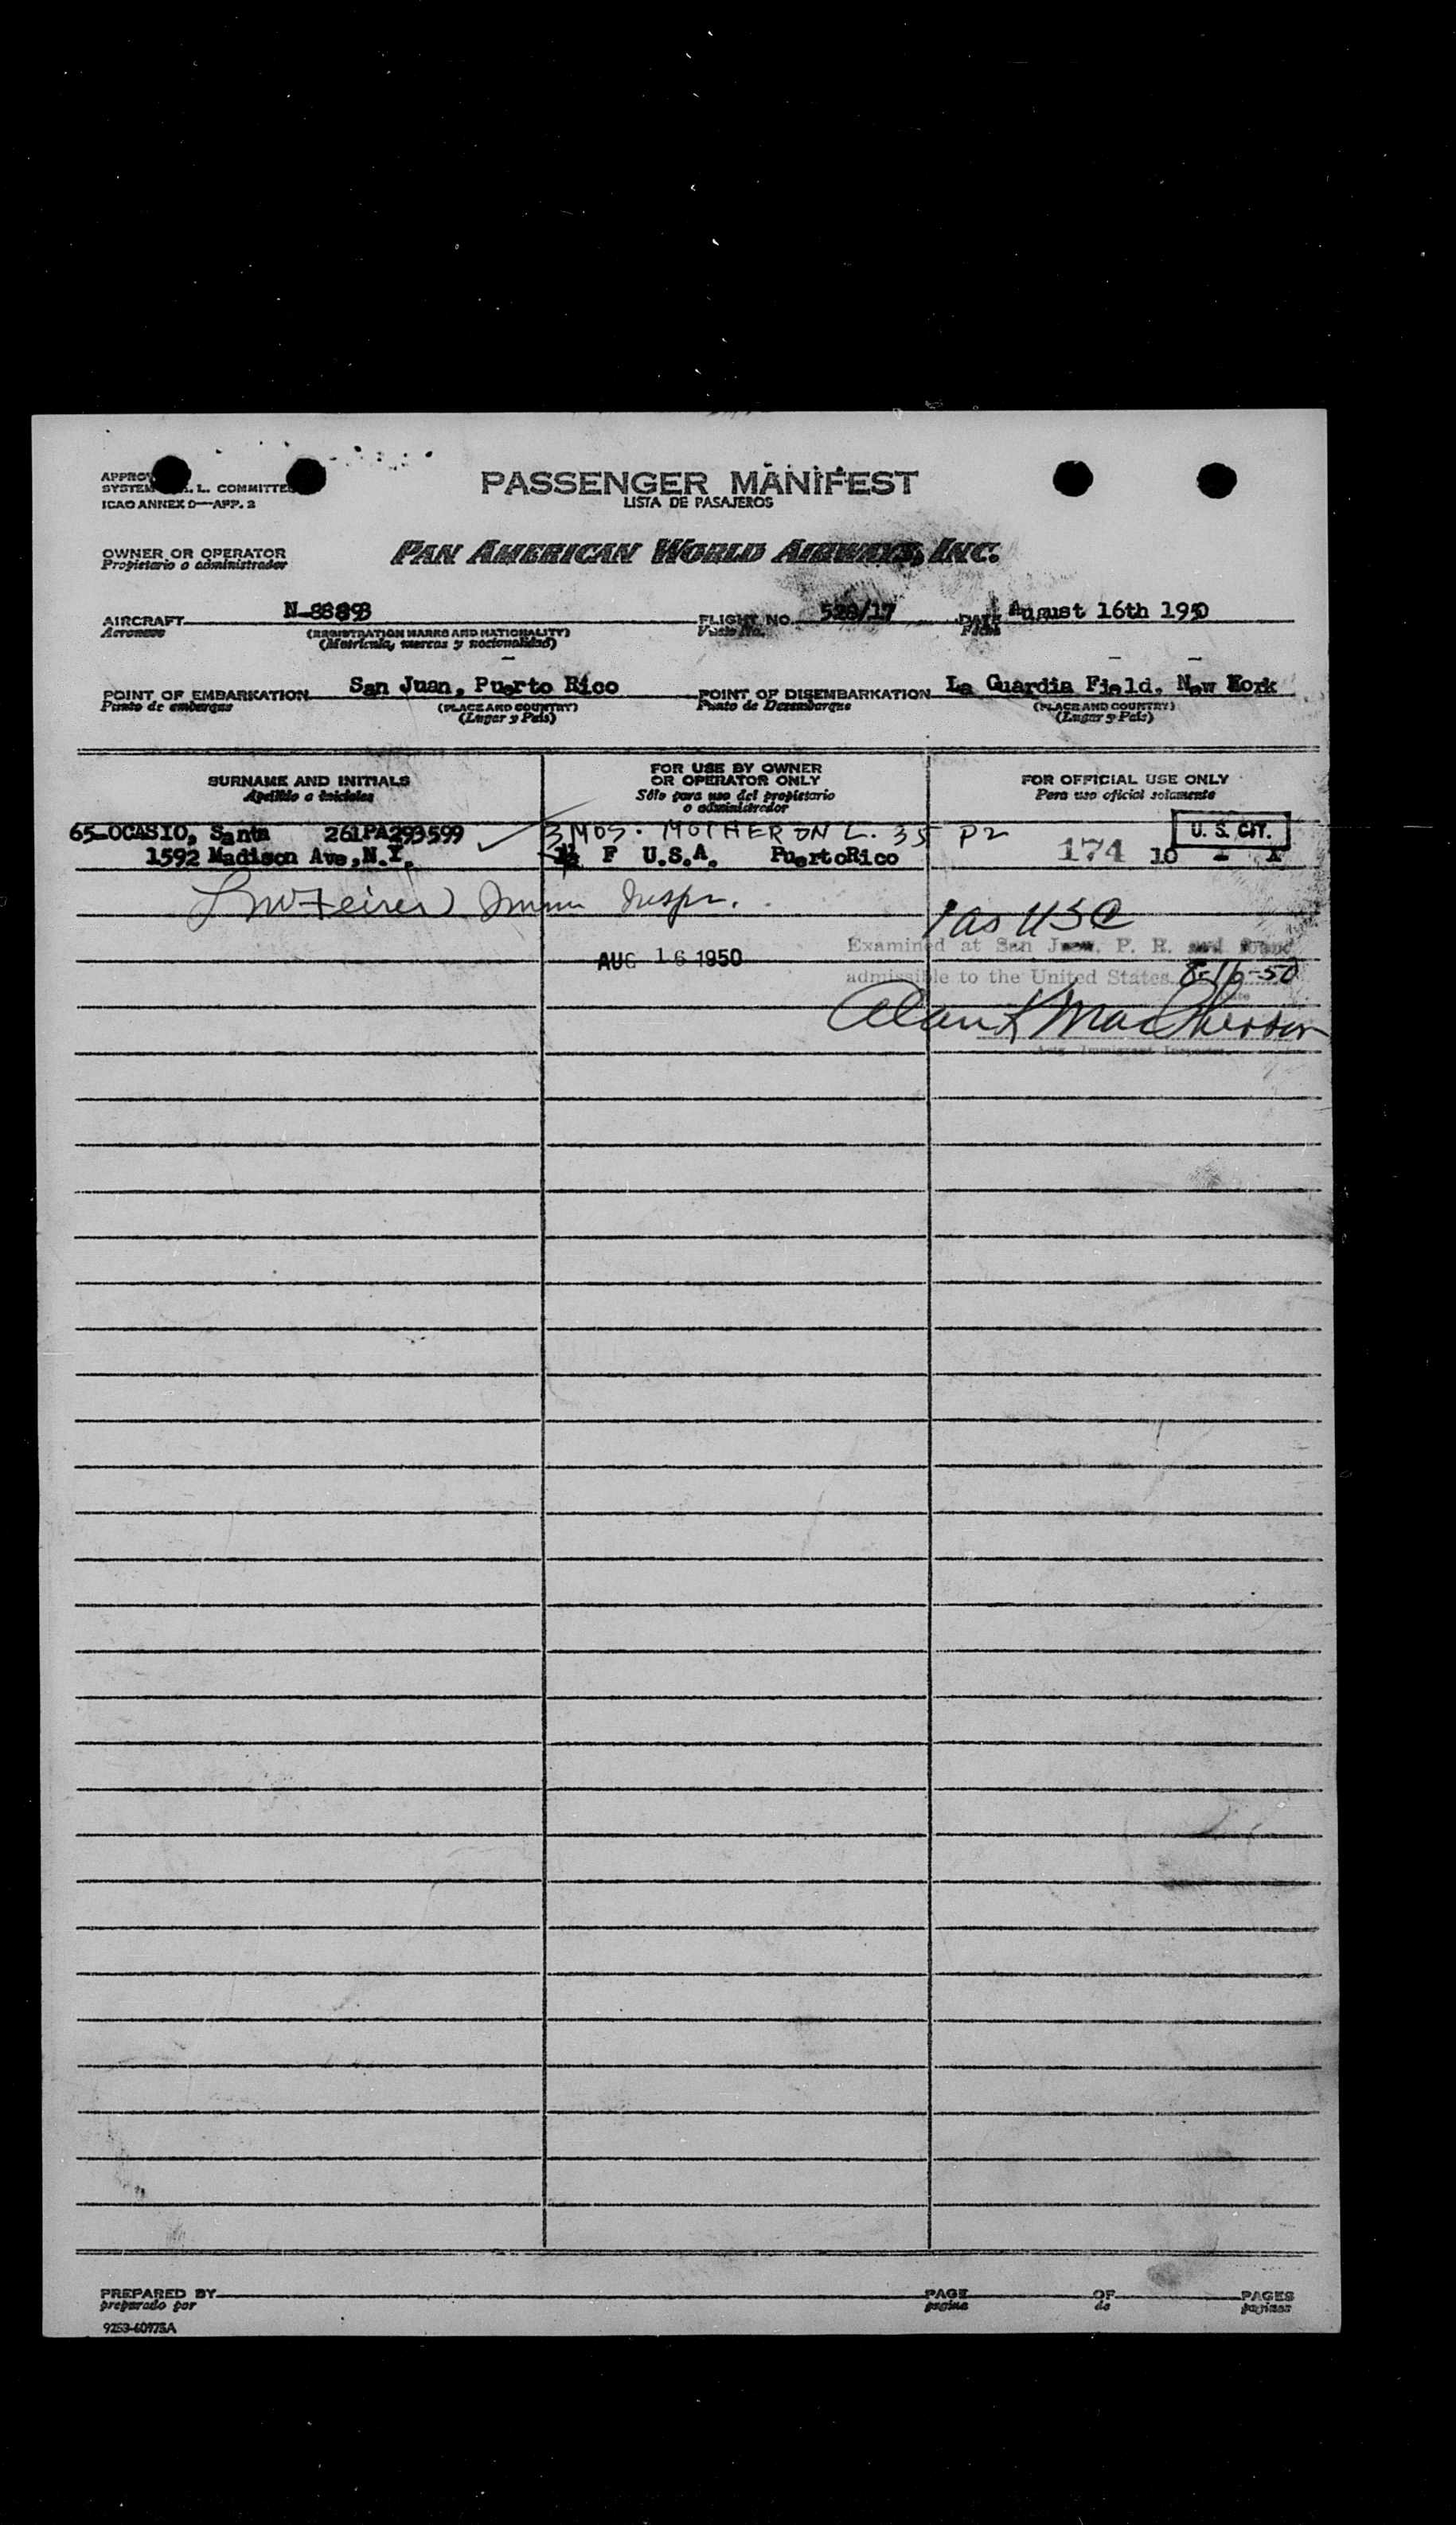 PASSENGER MANIFEST
LISTA DE PASAJEROS
SYSTEM L. COMMITTEE
ICAO ANNEX D—APP. 2
OWNER OR OPERATOR
Propietario o administrador
PAN AMERICAN WORLD AIRWAYS, INC.
AIRCRAFT N-88898 FLIGHT NO. 528/17 DATE August 16th 1950
Aeronave (REGISTRATION MARKS AND NATIONALITY) Vuelo No. Fecha
(Matricula, marcas y nacionalidad)
POINT OF EMBARKATION San Juan, Puerto Rico POINT OF DISEMBARKATION La Guardia Field, New York
Punto de embarque (PLACE AND COUNTRY) Punto de Desembarque (PLACE AND COUNTRY)
(Lugar y País) (Lugar y País)
SURNAME AND INITIALS
Apellido e iniciales
FOR USE BY OWNER
OR OPERATOR ONLY
Sólo para uso del propietario
o administrador
FOR OFFICIAL USE ONLY
Para uso oficial solamente
65-OCASIO, Santa 261PA293599 3 MOS. MOTHER ON L. 35 P2 U. S. CIT.
1592 Madison Ave, N.Y. F U.S.A. Puerto Rico 174 10
Immn Inspr.
1 as USC
Examined at San Juan, P. R. and found
AUG 16 1950
admissible to the United States 8-16-50
Alan K MacPherson
Immigrant Inspector
PREPARED BY PAGE OF PAGES
preparado por pagina de paginas
9253-60975A